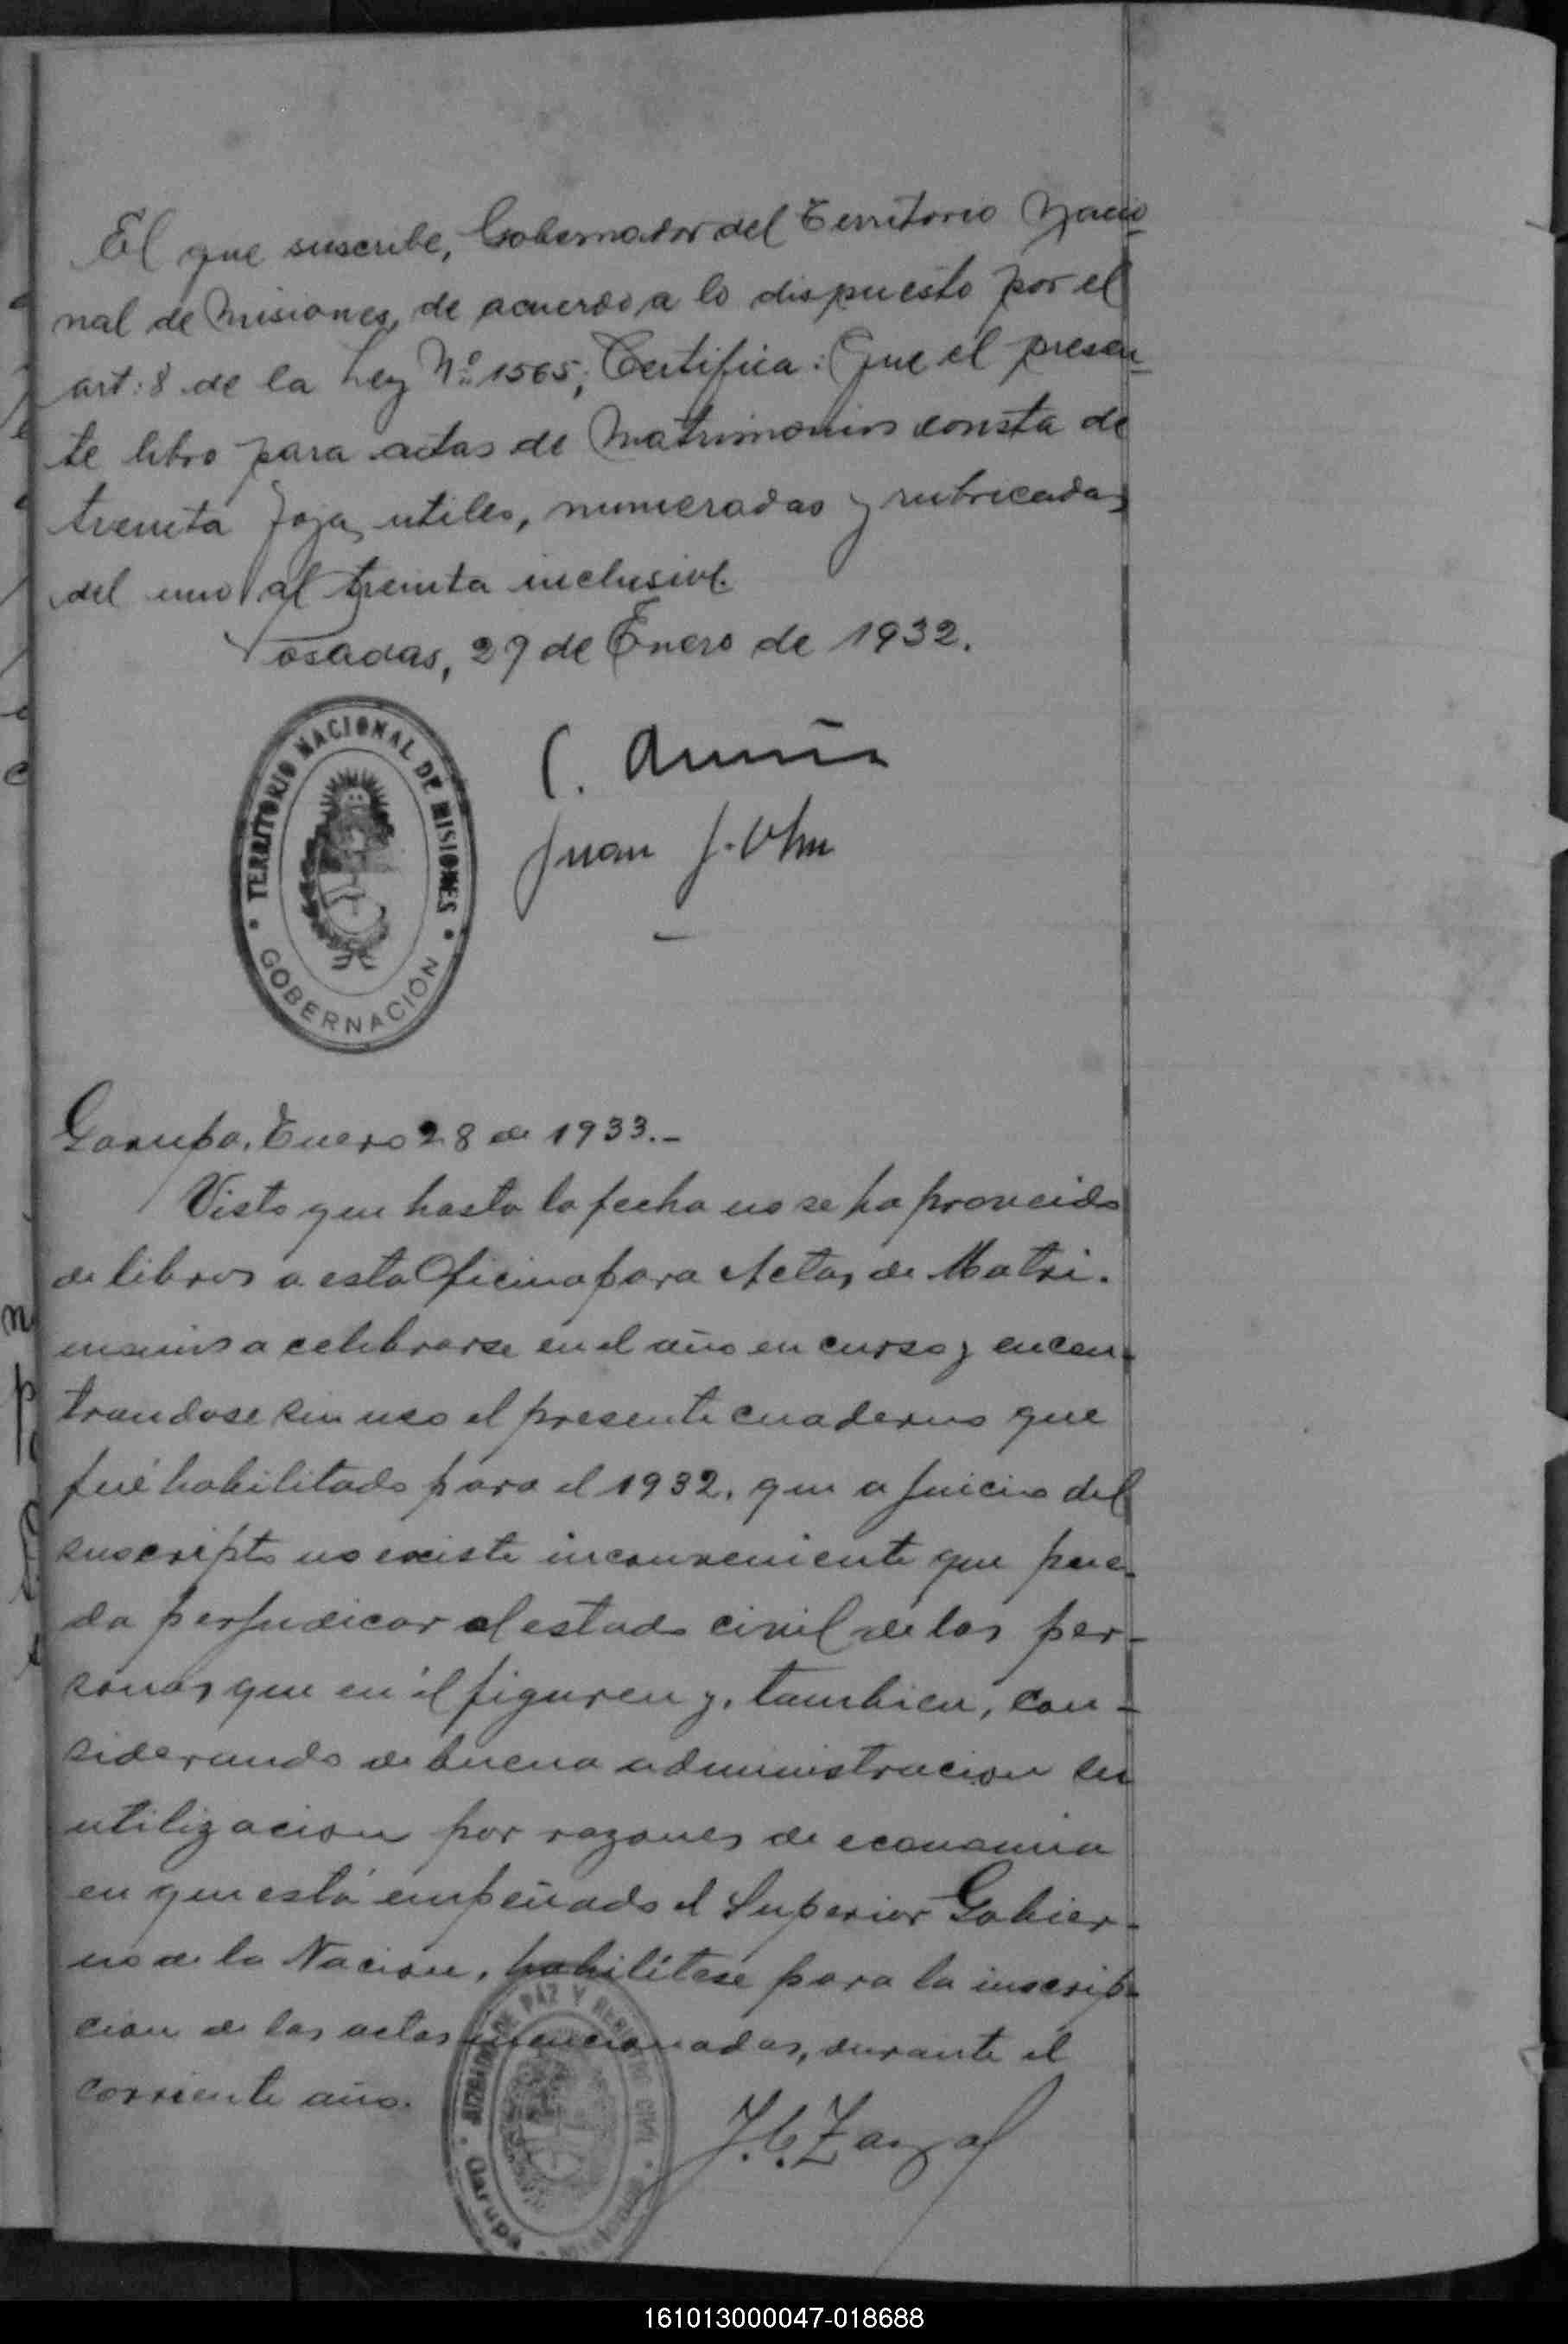 El que suscribe, Gobernador del Territorio Nacio-
nal de Misiones, de acuerdo a lo dispuesto por el
art: 8 de la Ley Nº 1565; Certifica: Que el presen-
te libro para actas de Matrimonios consta de
treinta fojas utiles, numeradas y rubricadas
del uno al treinta inclusive.
Posadas, 29 de Enero de 1932.
TERRITORIO NACIONAL DE MISIONES
GOBERNACIÓN
C.
Juan J.
Garupa, Enero 28 de 1933.-
Visto que hasta la fecha no se ha proveido
de libros a esta Oficina para Actas de Matri-
monios a celebrarse en el año en curso y encon-
trandose sin uso el presente cuaderno que
fué habilitado para el 1932, que a juicio del
suscripto no existe inconveniente que pue-
da perjudicar el estado civil de las per-
sonas que en él figuren y, tambien, con-
siderando de buena administracion su
utilizacion por razones de economia
en que está empeñado el Superior Gobier-
no de la Nacion, habilítese para la inscrip-
cion de las actas mencionadas, durante el
corriente año.
JUZGADO DE PAZ Y REGISTRO CIVIL
Garupá
J. C.
161013000047-018688